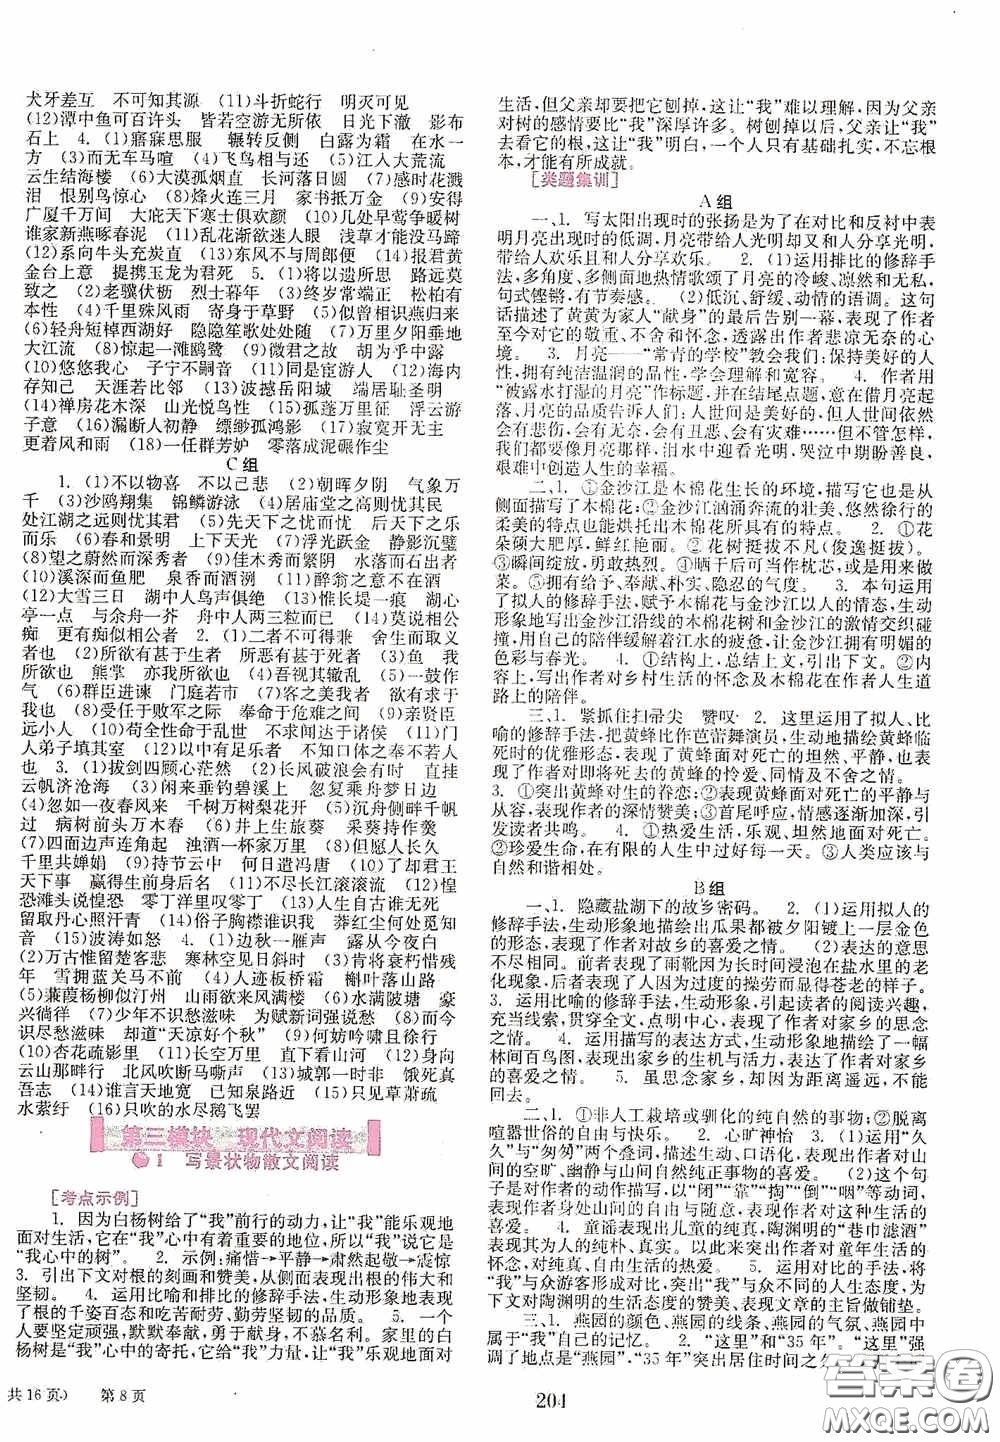 犬牙差互　不可知其源　(11)斗折蛇行　明灭可见
(12)潭中鱼可百许头　皆若空游无所依　日光下澈　影布
石上　4. (1)寤寐思服　辗转反侧　白露为霜　在水一
方　(3)而无车马喧　(4)飞鸟相与还　(5)江入大荒流
云生结海楼　(6)大漠孤烟直　长河落日圆　(7)感时花溅
泪　恨别鸟惊心　(8)烽火连三月　家书抵万金　(9)安得
广厦千万间　大庇天下寒士俱欢颜　(10)几处早莺争暖树
谁家新燕啄春泥　(11)乱花渐欲迷人眼　浅草才能没马蹄
(12)系向牛头充炭直　(13)东风不与周郎便　(14)报君黄
金台上意　提携玉龙为君死　5. (1)将以遗所思　路远莫
致之　(2)老骥伏枥　烈士暮年　(3)终岁常端正　松柏有
本性　(4)千里殊风雨　寄身于草野　(5)似曾相识燕归来
(6)轻舟短棹西湖好　隐隐笙歌处处随　(7)万里夕阳垂地
大江流　(8)惊起一滩鸥鹭　(9)微君之故　胡为乎中露
(10)悠悠我心　子宁不嗣音　(11)同是宦游人　(12)海内
存知己　天涯若比邻　(13)波撼岳阳城　端居耻圣明
(14)禅房花木深　山光悦鸟性　(15)孤蓬万里征　浮云游
子意　(16)漏断人初静　缥缈孤鸿影　(17)寂寞开无主
更着风和雨　(18)一任群芳妒　零落成泥碾作尘
C 组
1. (1)不以物喜　不以己悲　(2)朝晖夕阴　气象万
千　(3)沙鸥翔集　锦鳞游泳　(4)居庙堂之高则忧其民
处江湖之远则忧其君　(5)先天下之忧而忧　后天下之乐
而乐　(6)春和景明　上下天光　(7)浮光跃金　静影沉璧
(8)望之蔚然而深秀者　(9)佳木秀而繁阴　水落而石出者
(10)溪深而鱼肥　泉香而酒洌　(11)醉翁之意不在酒
(12)大雪三日　湖中人鸟声俱绝　(13)惟长堤一痕　湖心
亭一点　与余舟一芥　舟中人两三粒而已　(14)莫说相公
痴　更有痴似相公者　2. (1)二者不可得兼　舍生而取义
者也　(2)所欲有甚于生者　所恶有甚于死者　(3)鱼　我
所欲也　熊掌　亦我所欲也　(4)吾视其辙乱　(5)一鼓作
气　(6)群臣进谏　门庭若市　(7)客之美我者　欲有求于
我也　(8)受任于败军之际　奉命于危难之间　(9)亲贤臣
远小人　(10)苟全性命于乱世　不求闻达于诸侯　(11)门
人弟子填其室　(12)以中有足乐者　不知口体之奉不若人
也　3. (1)拔剑四顾心茫然　(2)长风破浪会有时　直挂
云帆济沧海　(3)闲来垂钓碧溪上　忽复乘舟梦日边
(4)忽如一夜春风来　千树万树梨花开　(5)沉舟侧畔千帆
过　病树前头万木春　(6)井上生旅葵　采葵持作羹
(7)四面边声连角起　浊酒一杯家万里　(8)但愿人长久
千里共婵娟　(9)持节云中　何日遣冯唐　(10)了却君王
天下事　赢得生前身后名　(11)不尽长江滚滚流　(12)惶
恐滩头说惶恐　零丁洋里叹零丁　(13)人生自古谁无死
留取丹心照汗青　(14)俗子胸襟谁识我　莽红尘何处觅知
音　(15)波涛如怒　4. (1)边秋一雁声　露从今夜白
(2)万古惟留楚客悲　寒林空见日斜时　(3)肯将衰朽惜残
年　雪拥蓝关马不前　(4)人迹板桥霜　槲叶落山路
(5)蒹葭杨柳似汀州　山雨欲来风满楼　(6)水满陂塘　豪
兴徜徉　(7)少年不识愁滋味　为赋新词强说愁　(8)而今
识尽愁滋味　却道“天凉好个秋”　(9)何妨吟啸且徐行
(10)杏花疏影里　(11)长空万里　直下看山河　(12)身向
云山那畔行　北风吹断马嘶声　(13)城郭一时非　饿死真
吾志　(14)谁言天地宽　已知泉路近　(15)只见草萧疏
水萦纡　(16)只吹的水尽鹅飞罢
第三模块　现代文阅读
1　写景状物散文阅读
[考点示例]
1. 因为白杨树给了“我”前行的动力,让“我”能乐观地
面对生活,它在“我”心中有着重要的地位,所以“我”说它是
“我心中的树”。　2. 示例:痛惜→平静→肃然起敬→震惊
3. 引出下文对根的刻画和赞美,从侧面表现出根的伟大和
坚韧。　4. 运用比喻和排比的修辞手法,生动形象地表现
了根的千姿百态和吃苦耐劳、勤劳坚韧的品质。　5. 一个
人要坚定顽强,默默奉献,勇于献身,不慕名利。家里的白
杨树是“我”心中的寄托,它给“我”力量,让“我”乐观地面对
生活,但父亲却要把它刨掉,这让“我”难以理解,因为父亲
对树的感情要比“我”深厚许多。树刨掉以后,父亲让“我”
去看它的根,这让“我”明白,一个人只有基础扎实,不忘根
本,才能有所成就。
[类题集训]
A 组
一、1. 写太阳出现时的张扬是为了在对比和反衬中表
明月亮出现时的低调,月亮带给人光明却又和人分享光明,
带给人欢乐且和人分享欢乐。　2. (1)运用排比的修辞手
法,多角度、多侧面地热情歌颂了月亮的冷峻、凛然和无私,
句式铿锵,有节奏感。　(2)低沉、舒缓、动情的语调。这句
话描述了黄黄为家人“献身”的最后告别一幕,表现了作者
至今对它的敬重、不舍和怀念,透露出作者悲凉无奈的心
境。　3. 月亮——“常青的学校”教会我们:保持美好的人
性,拥有纯洁温润的品性,学会理解和宽容。　4. 作者用
“被露水打湿的月亮”作标题,并在结尾点题,意在借月亮起
落、月亮的品质告诉人们:人世间是美好的,但人世间依然
会有悲伤,会有无奈,会有丑恶、会有灾难……但不管怎样,
我们都要像月亮那样,泪水中噙着光明,哭泣中期盼善良,
艰难中创造人生的幸福。
二、1. ①金沙江是木棉花生长的环境,描写它也是从
侧面描写木棉花;②金沙江汹涌奔流的壮美、悠然徐行的
柔美的特点也能烘托出木棉花所具有的特点。　2. ①花
朵硕大肥厚,鲜红艳丽。②花树挺拔不凡(俊逸挺拔)。
③瞬间绽放,勇敢热烈。④晒干后可当作枕芯,或是用来做
菜。⑤拥有给予、奉献、朴实、隐忍的气度。　3. 本句运用
了拟人的修辞手法,赋予木棉花与金沙江以人的情态,生动
形象地写出金沙江沿线的木棉花树和金沙江的激情交织碰
撞,用自己的陪伴缓解着江水的疲惫,让金沙江拥有明媚的
色彩与春光。　4. ①结构上,总结上文,引出下文。②内
容上,写出作者对乡村生活的怀念及木棉花在作者人生道
路上的陪伴。
三、1. 紧抓住扫帚尖　赞叹　2. 这里运用了拟人、比
喻的修辞手法,把黄蜂比作芭蕾舞演员,生动地描绘黄蜂临
死时的优雅形态,表现了黄蜂面对死亡的坦然、平静,与表
现了作者对即将死去的黄蜂的怜爱、同情及不舍之情。
3. ①突出黄蜂对生的眷恋;②表现黄蜂面对死亡的平静与
从容,表现作者的深情赞美;③首尾呼应,情感逐渐加深,引
发读者共鸣。　4. ①热爱生活,乐观、坦然地面对死亡。
②珍爱生命,在有限的人生中过好每一天。③人类应该与
自然和谐相处。
B 组
一、1. 隐藏盐湖下的故乡密码。　2. (1)运用拟人的
修辞手法,生动形象地描绘出瓜果都被夕阳镀上一层金色
的形态,表现了作者对故乡的喜爱之情。　(2)表达的意思
不尽相同。前者表现了雨靴因为长时间浸泡在盐水里的老
化现象,后者表现了人因为过度的操劳而显得苍老的样子。
3. 运用比喻的修辞手法,生动形象,引起读者的阅读兴趣,
充当线索,贯穿全文,点明中心,表现了作者对家乡的思念
之情。　4. 运用描写的表达方式,生动形象地描绘了一幅
林间百鸟图,表现出家乡的生机与活力,表现了作者对家乡
的喜爱之情。　5. 虽思念家乡,却因为距离遥远,不能
回去。
二、1. ①非人工栽培或驯化的纯自然的事物;②脱离
喧嚣世俗的自由与快乐。　2. 心旷神怡　3. (1)运用“久
久”与“匆匆”两个叠词,生动、口语化,表现了作者对山
间的空旷、幽静与山间纯正事物的喜爱。　(2)这个句
子是对作者的动作描写,以“闭”“靠”“掏”“倒”“咽”等动词,
表现作者身处山间的自由与随意,表现作者对这种生活的
喜爱。　4. 童谣表现出儿童的纯真,陶渊明的“巷巾滤酒”
表现其为人的纯朴、真实。以此来突出作者对童年生活的
怀念,对纯真、自然生活的热爱。　5. 运用对比的手法,将
“我”与众游客形成对比,突出“我”与众不同的人生态度,为
下文对陶渊明的生活态度的赞美、表现文章的主旨做铺垫。
三、1. 燕园的颜色、燕园的线条、燕园的气氛、燕园中
属于“我”自己的记忆。　2. “这里”和“35 年”。“这里”强
调了地点是“燕园”,“35 年”突出居住时间之
共 16 页)　第 8 页
204
答案圈
MXQE.COM